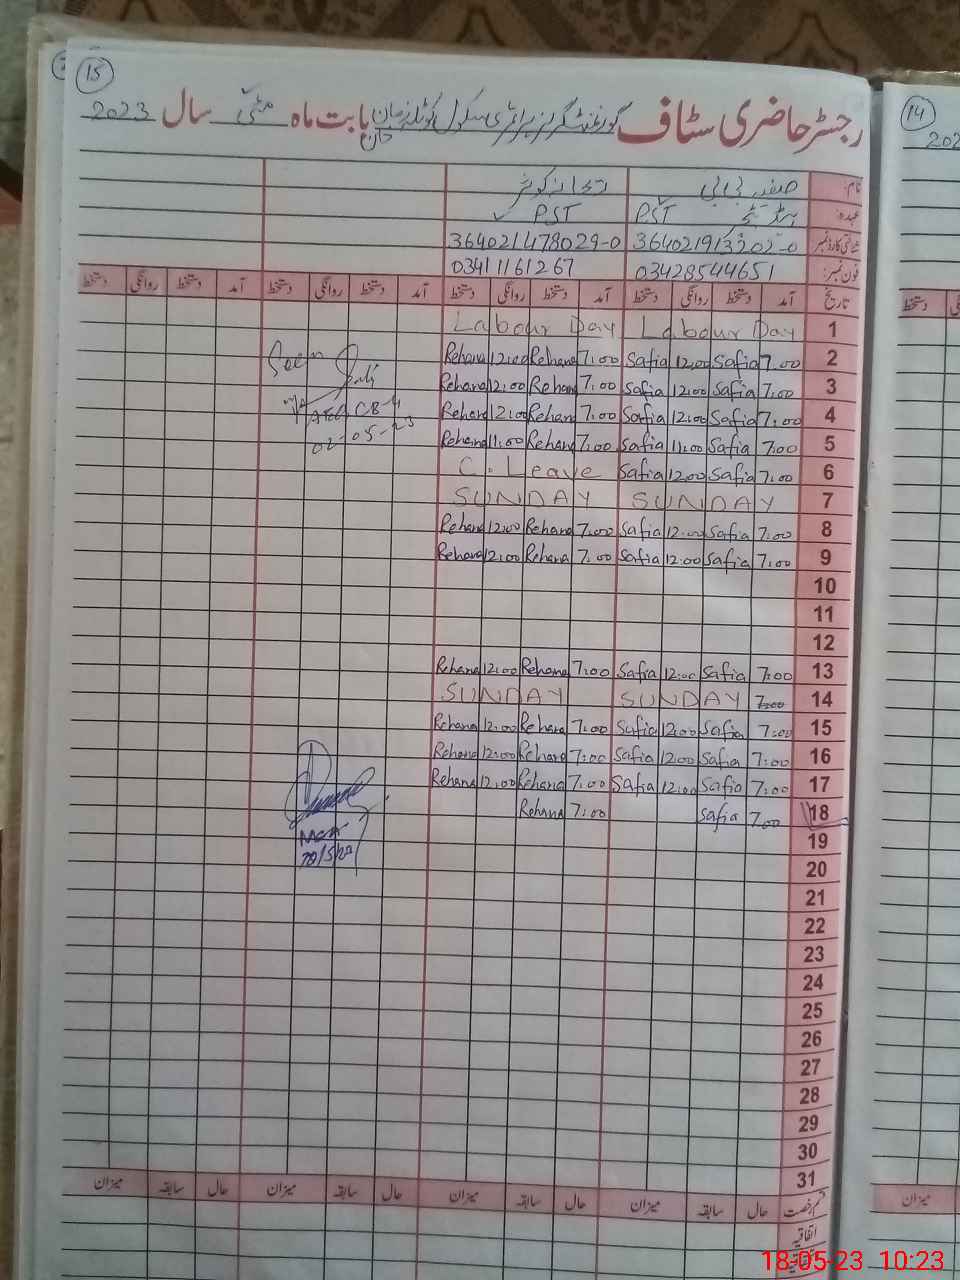 15
رجسٹر حاضری سٹاف گورنمنٹ گرلز پرائمری سکول کوٹلہ خان بابت ماہ مئی سال 2023
نام: صفیہ بی بی ریحانہ کوثر
عہدہ: ہیڈ ٹیچر PST PST
شناختی کارڈ نمبر 364021478029-0
فون نمبر: 03428544651 03411161267
تاریخ آمد دستخط روانگی دستخط آمد دستخط روانگی دستخط آمد دستخط روانگی دستخط آمد دستخط روانگی دستخط
Labour Day Labour Day 1
Rehana 12:00 Rehana 7:00 Safia 12:00 Safia 7:00 2
Rehana 12:00 Rehana 7:00 Safia 12:00 Safia 7:00 3
Rehana 12:00 Rehana 7:00 Safia 12:00 Safia 7:00 4
Rehana 11:00 Rehana 7:00 Safia 11:00 Safia 7:00 5
C. Leave Safia 12:00 Safia 7:00 6
SUNDAY SUNDAY 7
Rehana 12:00 Rehana 7:00 Safia 12:00 Safia 7:00 8
Rehana 12:00 Rehana 7:00 Safia 12:00 Safia 7:00 9
10
11
12
Rehana 12:00 Rehana 7:00 Safia 12:00 Safia 7:00 13
SUNDAY SUNDAY 7:00 14
Rehana 12:00 Rehana 7:00 Safia 12:00 Safia 7:00 15
Rehana 12:00 Rehana 7:00 Safia 12:00 Safia 7:00 16
Rehana 12:00 Rehana 7:00 Safia 12:00 Safia 7:00 17
Rehana 7:00 Safia 7:00 18
19
20
21
22
23
24
25
26
27
28
29
30
31
Seen
AEO CB-4
02-05-23
MEA
قسم رخصت حال سابقہ میزان حال سابقہ میزان حال سابقہ میزان حال سابقہ میزان
اتفاقیہ
14
202
دستخط
میزان
18-05-23 10:23